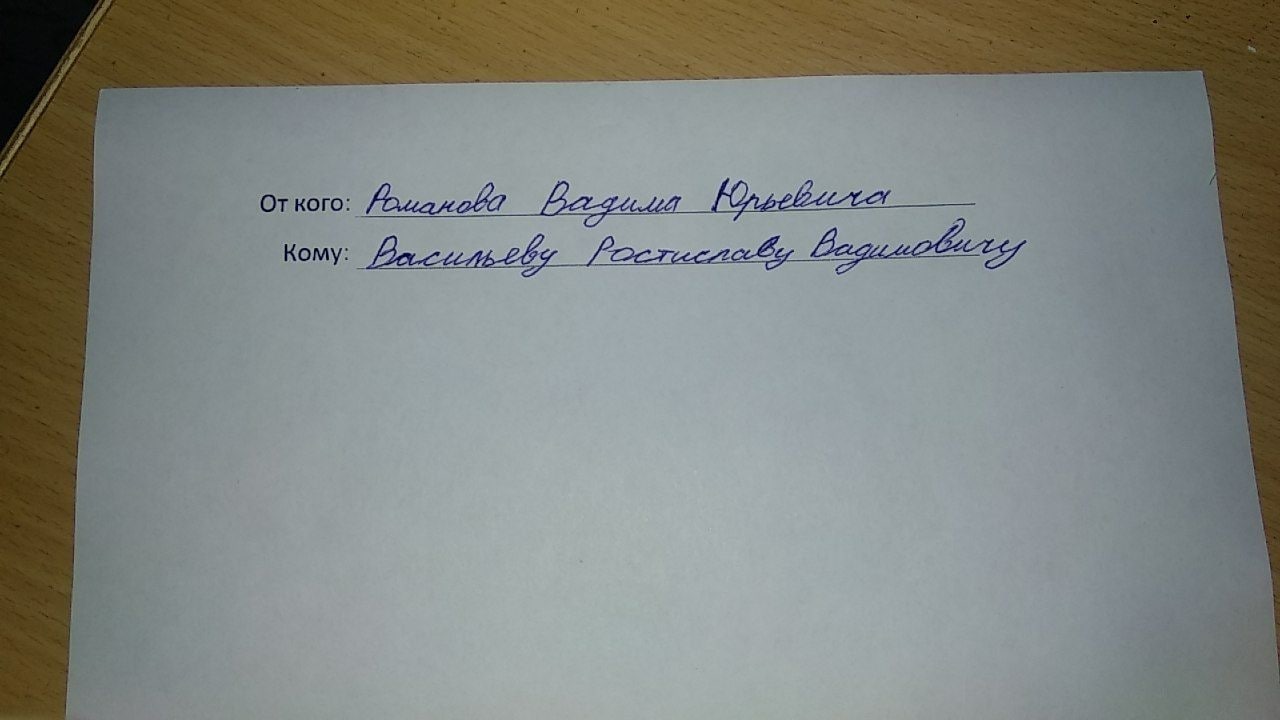 От кого: Романова Вадима Юрьевича
Кому: Васильеву Ростиславу Вадимовичу